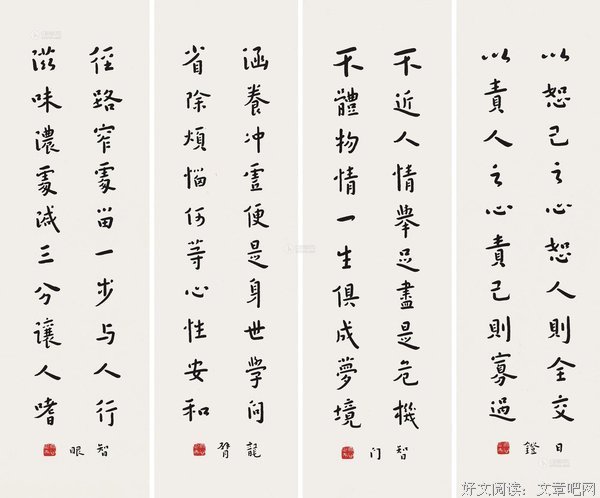 以恕己之心恕人則全交
以責人之心責己則寡過
日鐙
不近人情舉足盡是危機
不體物情一生俱成夢境
智门
涵養冲虛便是身世学问
省除煩惱何等心性安和
龍臂
径路窄處留一步与人行
滋味濃處减三分讓人嗜
智眼
好文阅读：文章吧网